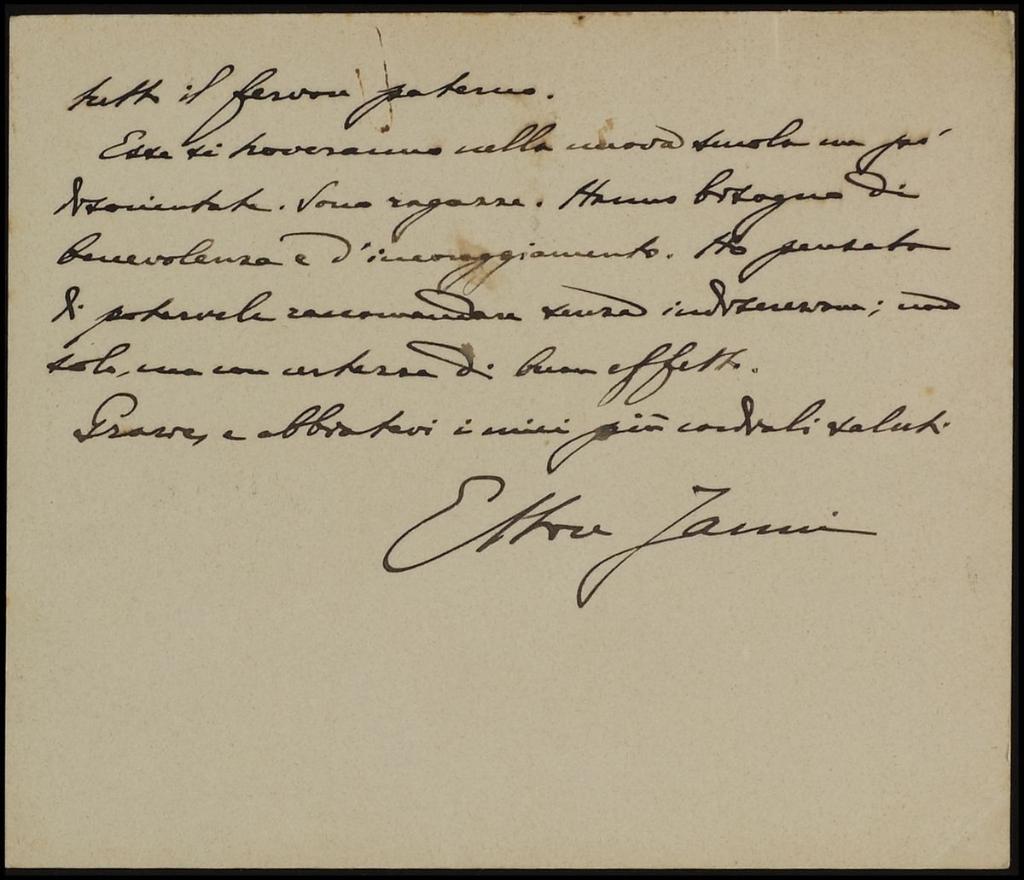 tutto il fervore paterno.
Esse si troveranno nella nuova scuola un po'
disorientate. Sono ragazze. Hanno bisogno di
benevolenza e d'incoraggiamento. Ho pensato
di potervele raccomandare senza indiscrezione; non
solo, ma con certezza di buon effetto.
Grazie, e abbiatevi i miei più cordiali saluti
Ettore Janni